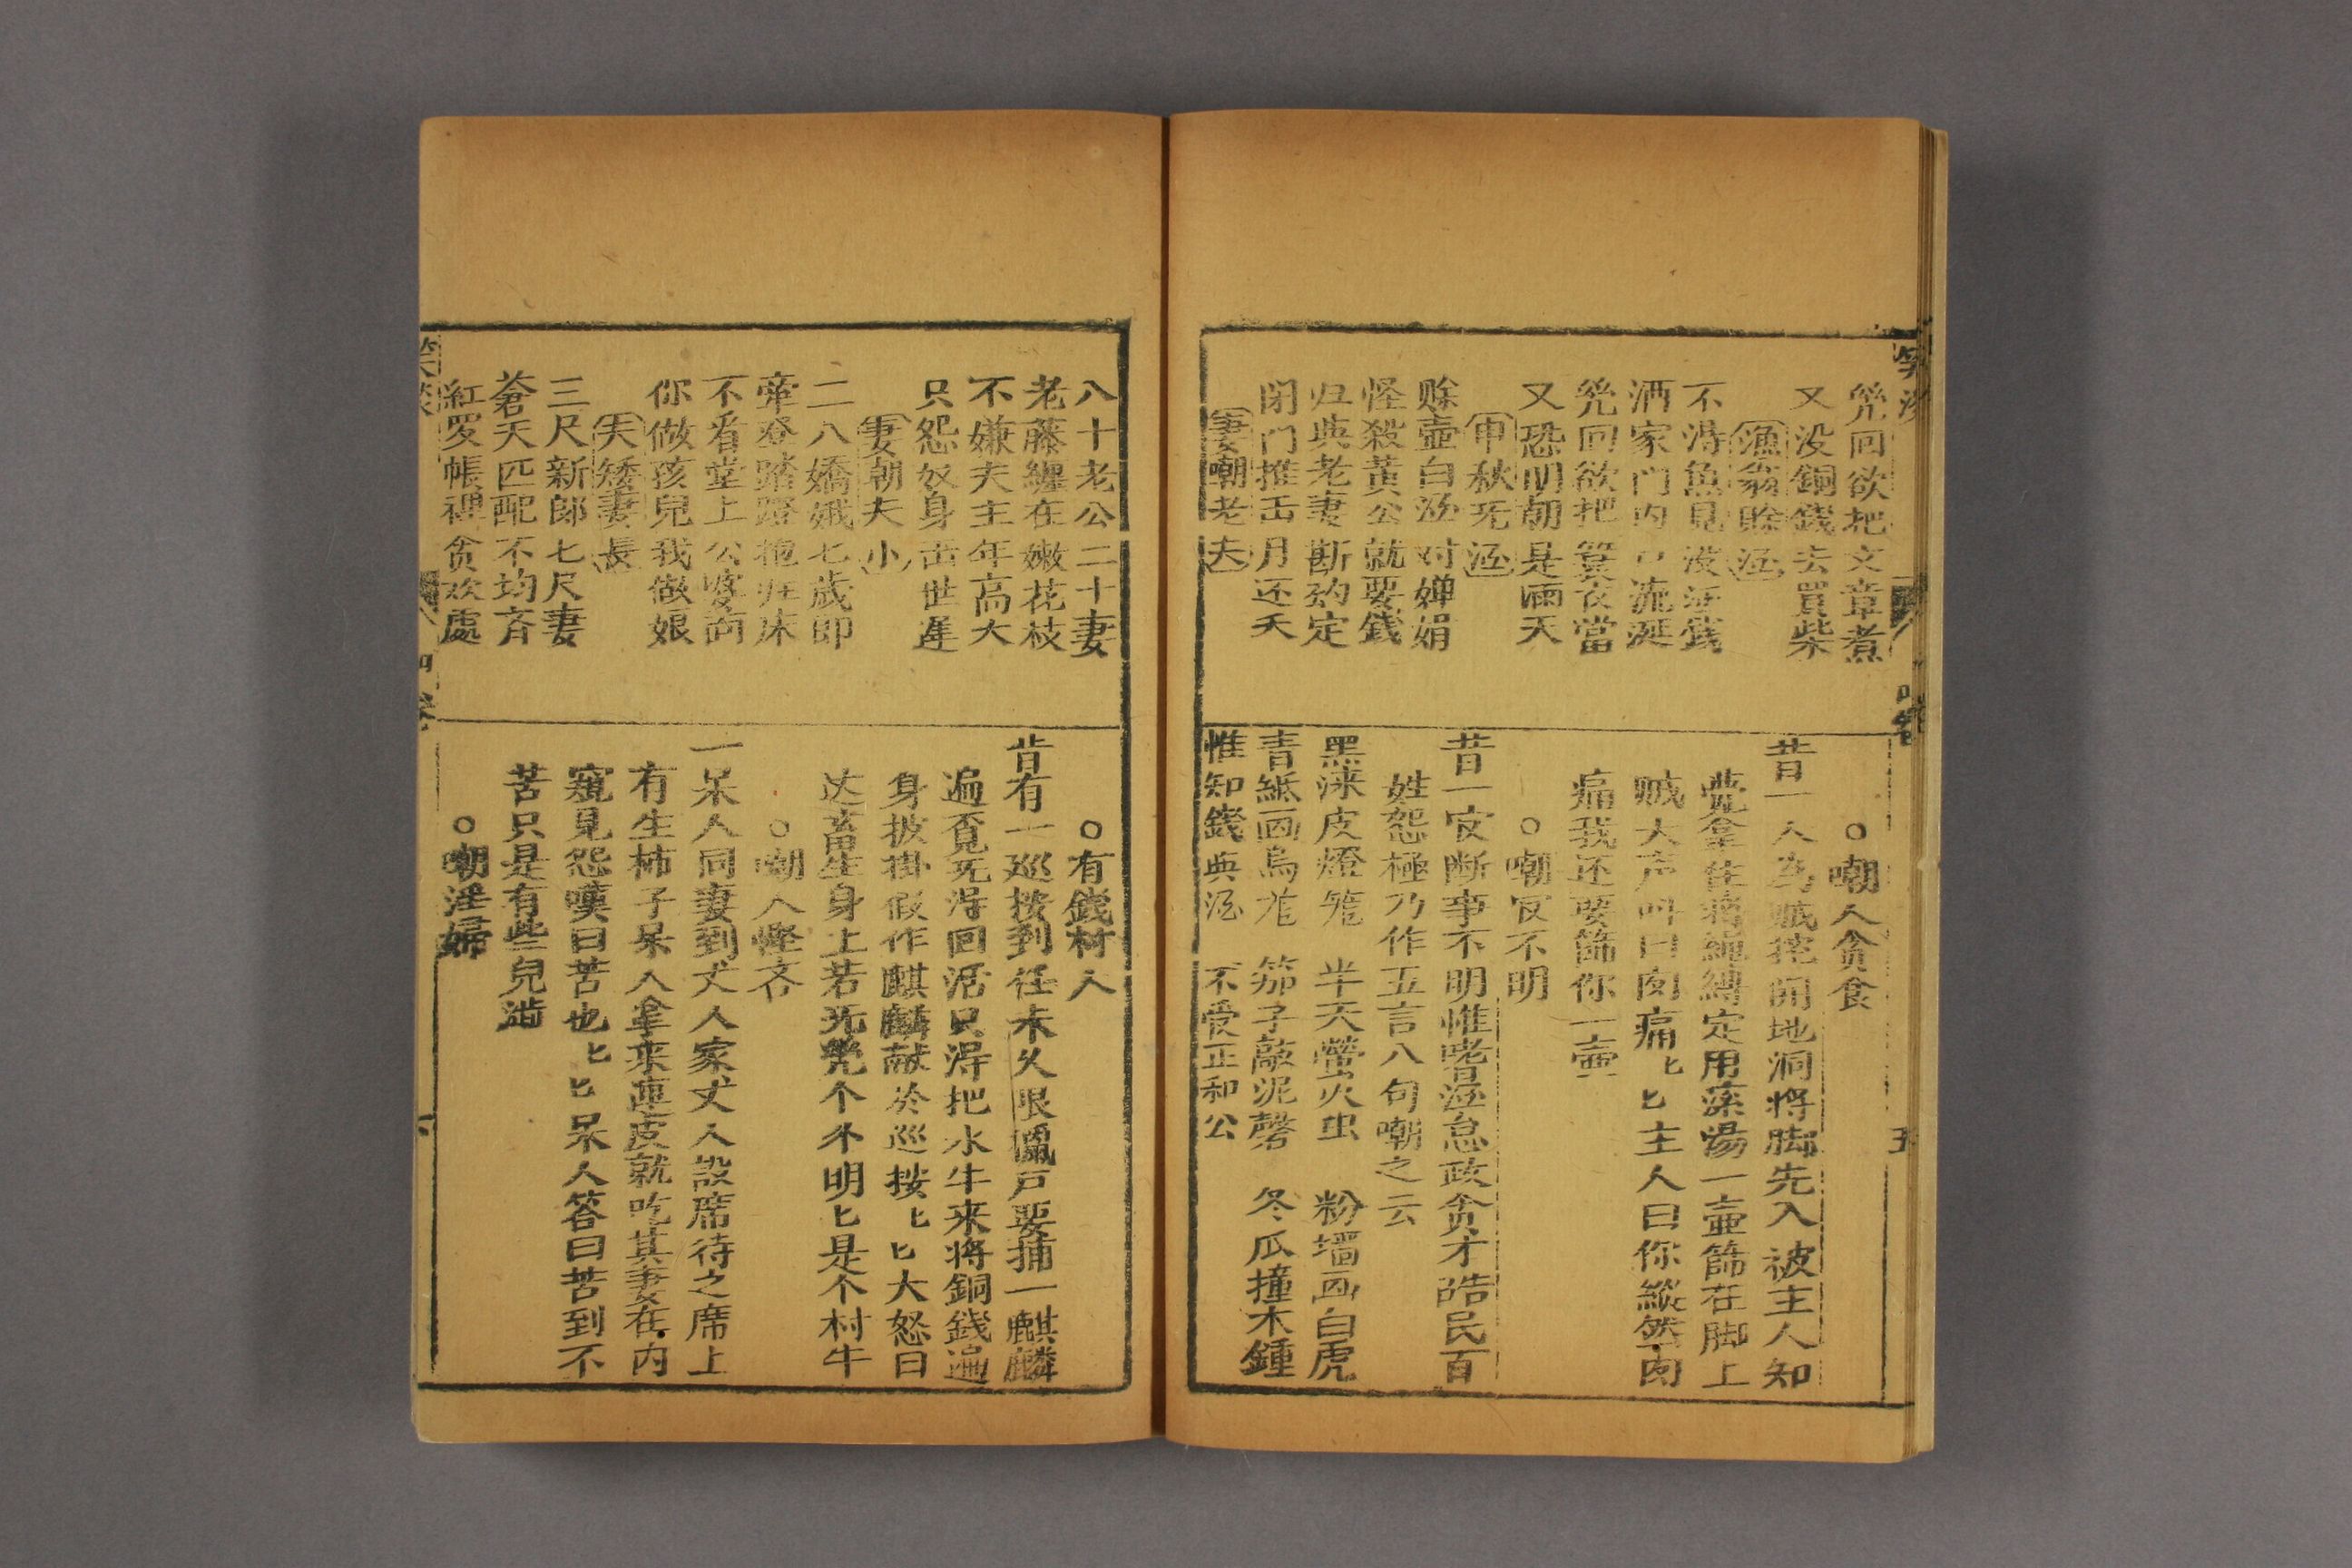 兠回欲把文章煮
又没銅錢去買柴
漁翁賖酒
不淂魚見没酒錢
洒家門内口流涎
兠回欲把簑衣當
又恐明朝是雨天
中秋无酒
賖壺白酒对嬋娟
怪殺黃公就要錢
归與老妻斟酌定
闭门推出月还天
妻嘲老夫
○嘲人貪食
昔一人為賊挖開地洞将脚先入被主人知
覺拿住将繩縛定用滚湯一壺篩在脚上
賊大声叫曰肉痛匕匕主人曰你縱然肉
痛我还要篩你一壺
○嘲官不明
昔一官断事不明惟嗜酒怠政贪才酷民百
姓怨極乃作五言八句嘲之云
黑漆皮燈籠 半天螢火虫 粉墙画白虎
青紙画烏龙 茄子敲泥磬 冬瓜撞木鍾
惟知錢與酒 不受正和公
八十老公二十妻
老藤纏在嫩花枝
不嫌夫主年高大
只怨奴身出世遲
妻朝夫小
二八嬌娥七歲郎
牽登踏蹬抱在床
不看堂上公婆面
你做孩兒我做娘
夫矮妻長
三尺新郎七尺妻
蒼天匹配不均斉
紅罗帳裡贪欢處
○有錢村人
昔有一巡按到任未久限獵戸要捕一麒麟
遍覔无淂回活只淂把水牛来將銅錢遍
身披掛假作麒麟献於巡按匕匕大怒曰
这畜生身上若无兠个不明匕是个村牛
○嘲人慳吝
一呆人同妻到丈人家丈人設席待之席上
有生柿子呆人拿来連皮就吃其妻在内
窺見怨嘆曰苦也匕匕呆人答曰苦到不
苦只是有些兒澁
○嘲淫婦